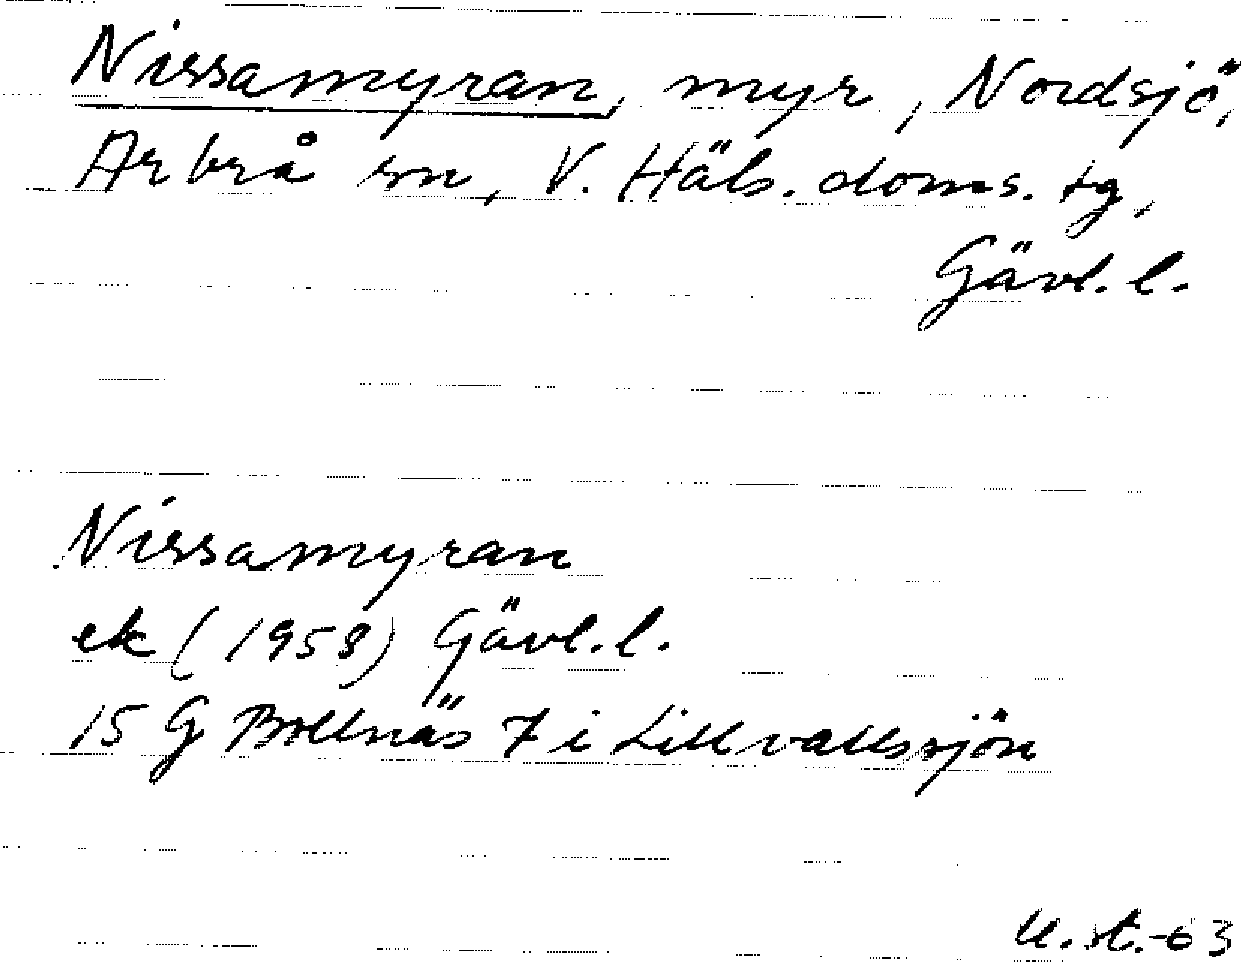 Nissamyran, myr, Nordsjö,
Arbrå sn, V. Häls. doms. tg,
Gävl. l.
Nissamyran
ek (1958) Gävl. l.
15 G Bollnäs 7 i Lillvallssjön
U. st. -63